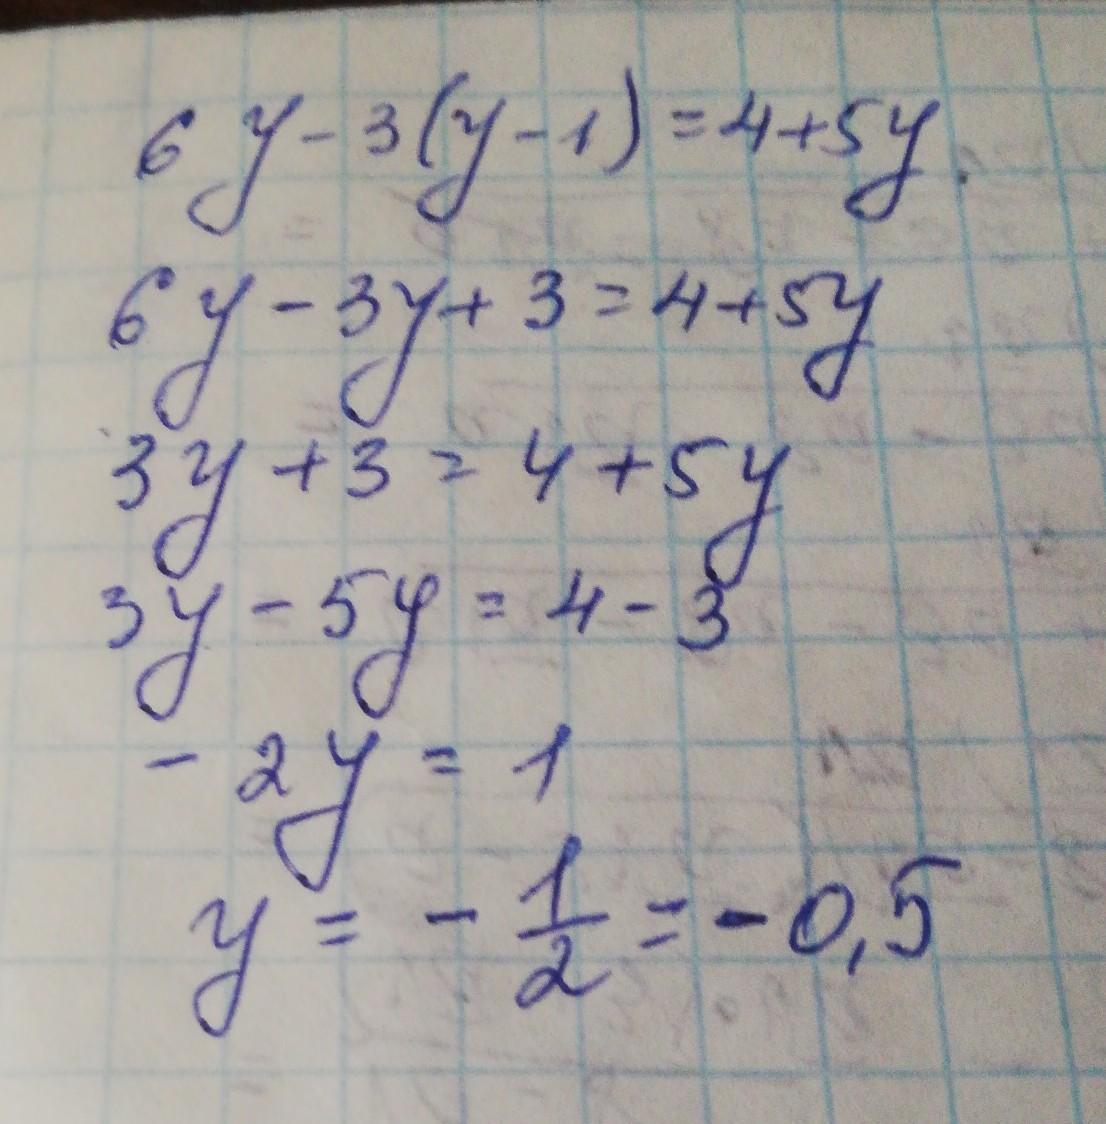 6y - 3(y - 1) = 4 + 5y
6y - 3y + 3 = 4 + 5y
3y + 3 = 4 + 5y
3y - 5y = 4 - 3
- 2y = 1
y = - 1/2 = - 0,5